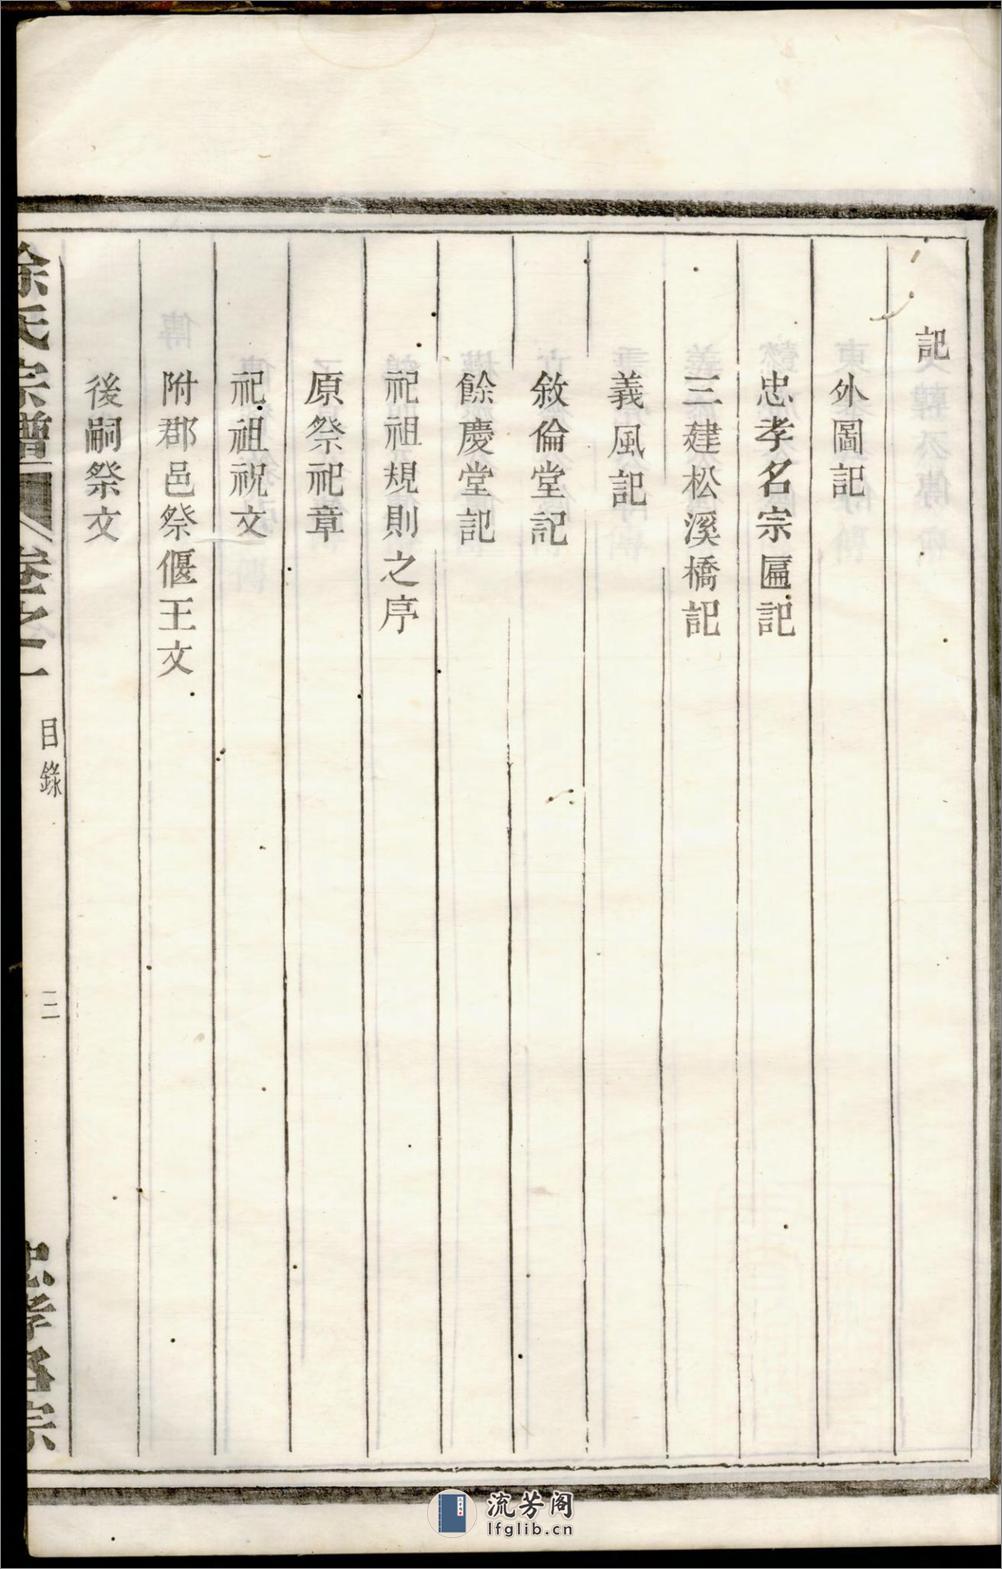 記
外圖記
忠孝名宗匾記
三建松溪橋記
義風記
敘倫堂記
餘慶堂記
祀祖規則之序
原祭祀章
祀祖祝文
附郡邑祭偃王文
後嗣祭文
徐氏宗譜
卷之一
目錄
三
忠孝名宗
流芳阁
lfglib.cn